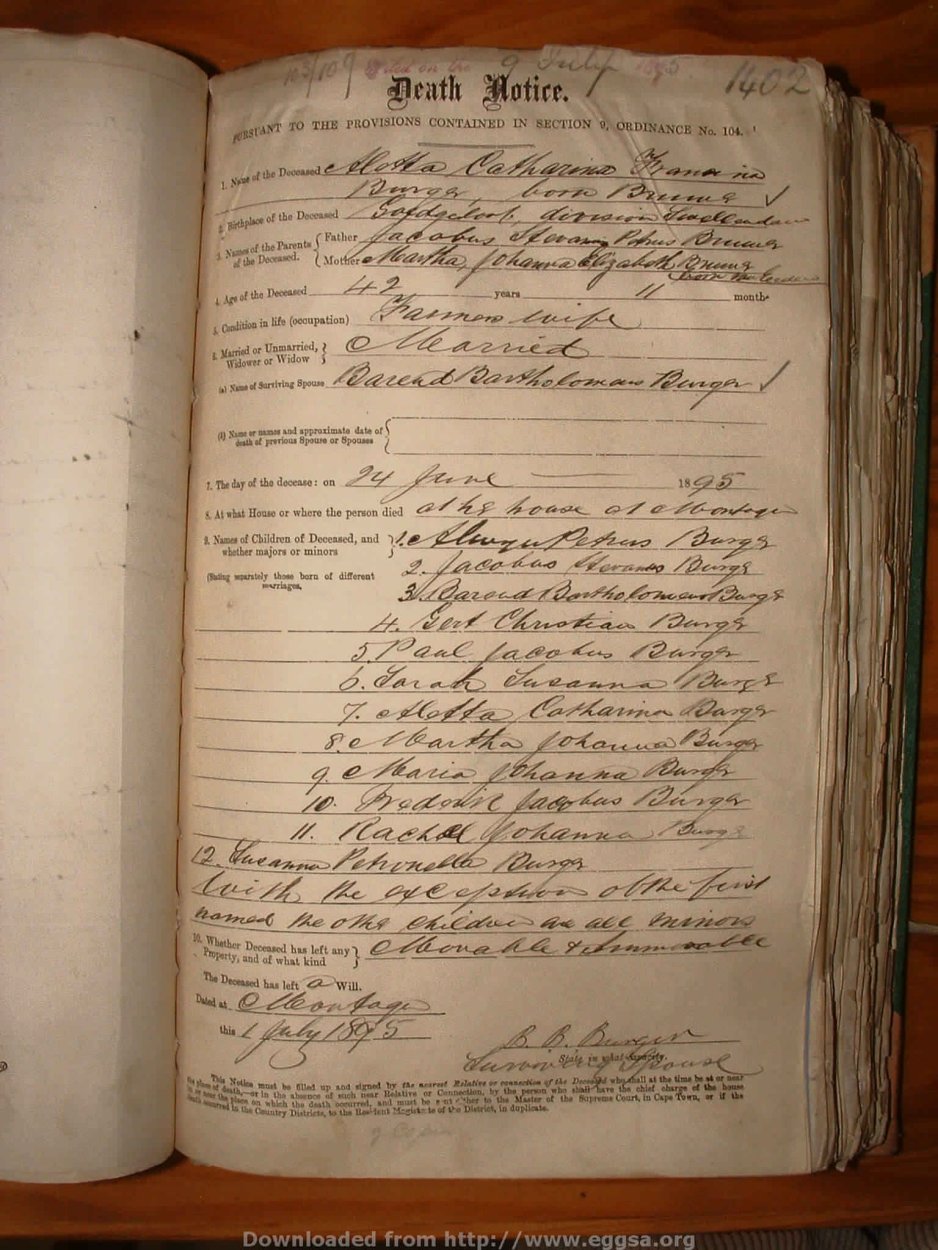 103/109 Filed on the 9 July 1895 1402
Death Notice.
PURSUANT TO THE PROVISIONS CONTAINED IN SECTION 9, ORDINANCE No. 104.
1. Name of the Deceased Aletta Catharina Francina
Burger, born Bruwer
2. Birthplace of the Deceased division Swellendam
3. Names of the Parents of the Deceased. Father Jacobus Stevanus Petrus Bruwer
Mother Martha Johanna Elizabeth Bruwer
born
4. Age of the Deceased 42 years 11 months
5. Condition in life (occupation) Farmers wife
6. Married or Unmarried, Widower or Widow Married
(a) Name of Surviving Spouse Barend Bartholomeus Burger
(b) Name or names and approximate date of death of previous Spouse or Spouses
7. The day of the decease: on 24 June 1895
8. At what House or where the person died at his house at Montagu
9. Names of Children of Deceased, and whether majors or minors 1. Petrus Burger
(Stating separately those born of different marriages.
2. Jacobus Stevanus Burger
3. Barend Bartholomeus Burger
4. Gert Christiaan Burger
5 Paul Jacobus Burger
6. Sarah Susanna Burger
7. Aletta Catharina Burger
8. Martha Johanna Burger
9. Maria Johanna Burger
10. Frederik Jacobus Burger
11. Rachel Johanna Burger
12. Susanna Petronella Burger
With the exception of the first
named the other children are all minors
10. Whether Deceased has left any Property, and of what kind Movable & Immovable
The Deceased has left a Will.
Dated at Montagu
this 1 July 1895
B. B. Burger
State in what capacity.
Surviving Spouse
This Notice must be filled up and signed by the nearest Relative or connection of the Deceased who shall at the time be at or near
the place of death,—or in the absence of such near Relative or Connection, by the person who shall have the chief charge of the house
in or near the place on which the death occurred, and must be sent either to the Master of the Supreme Court, in Cape Town, or if the
death occurred in the Country Districts, to the Resident Magistrate of the District, in duplicate.
Downloaded from http://www.eggsa.org